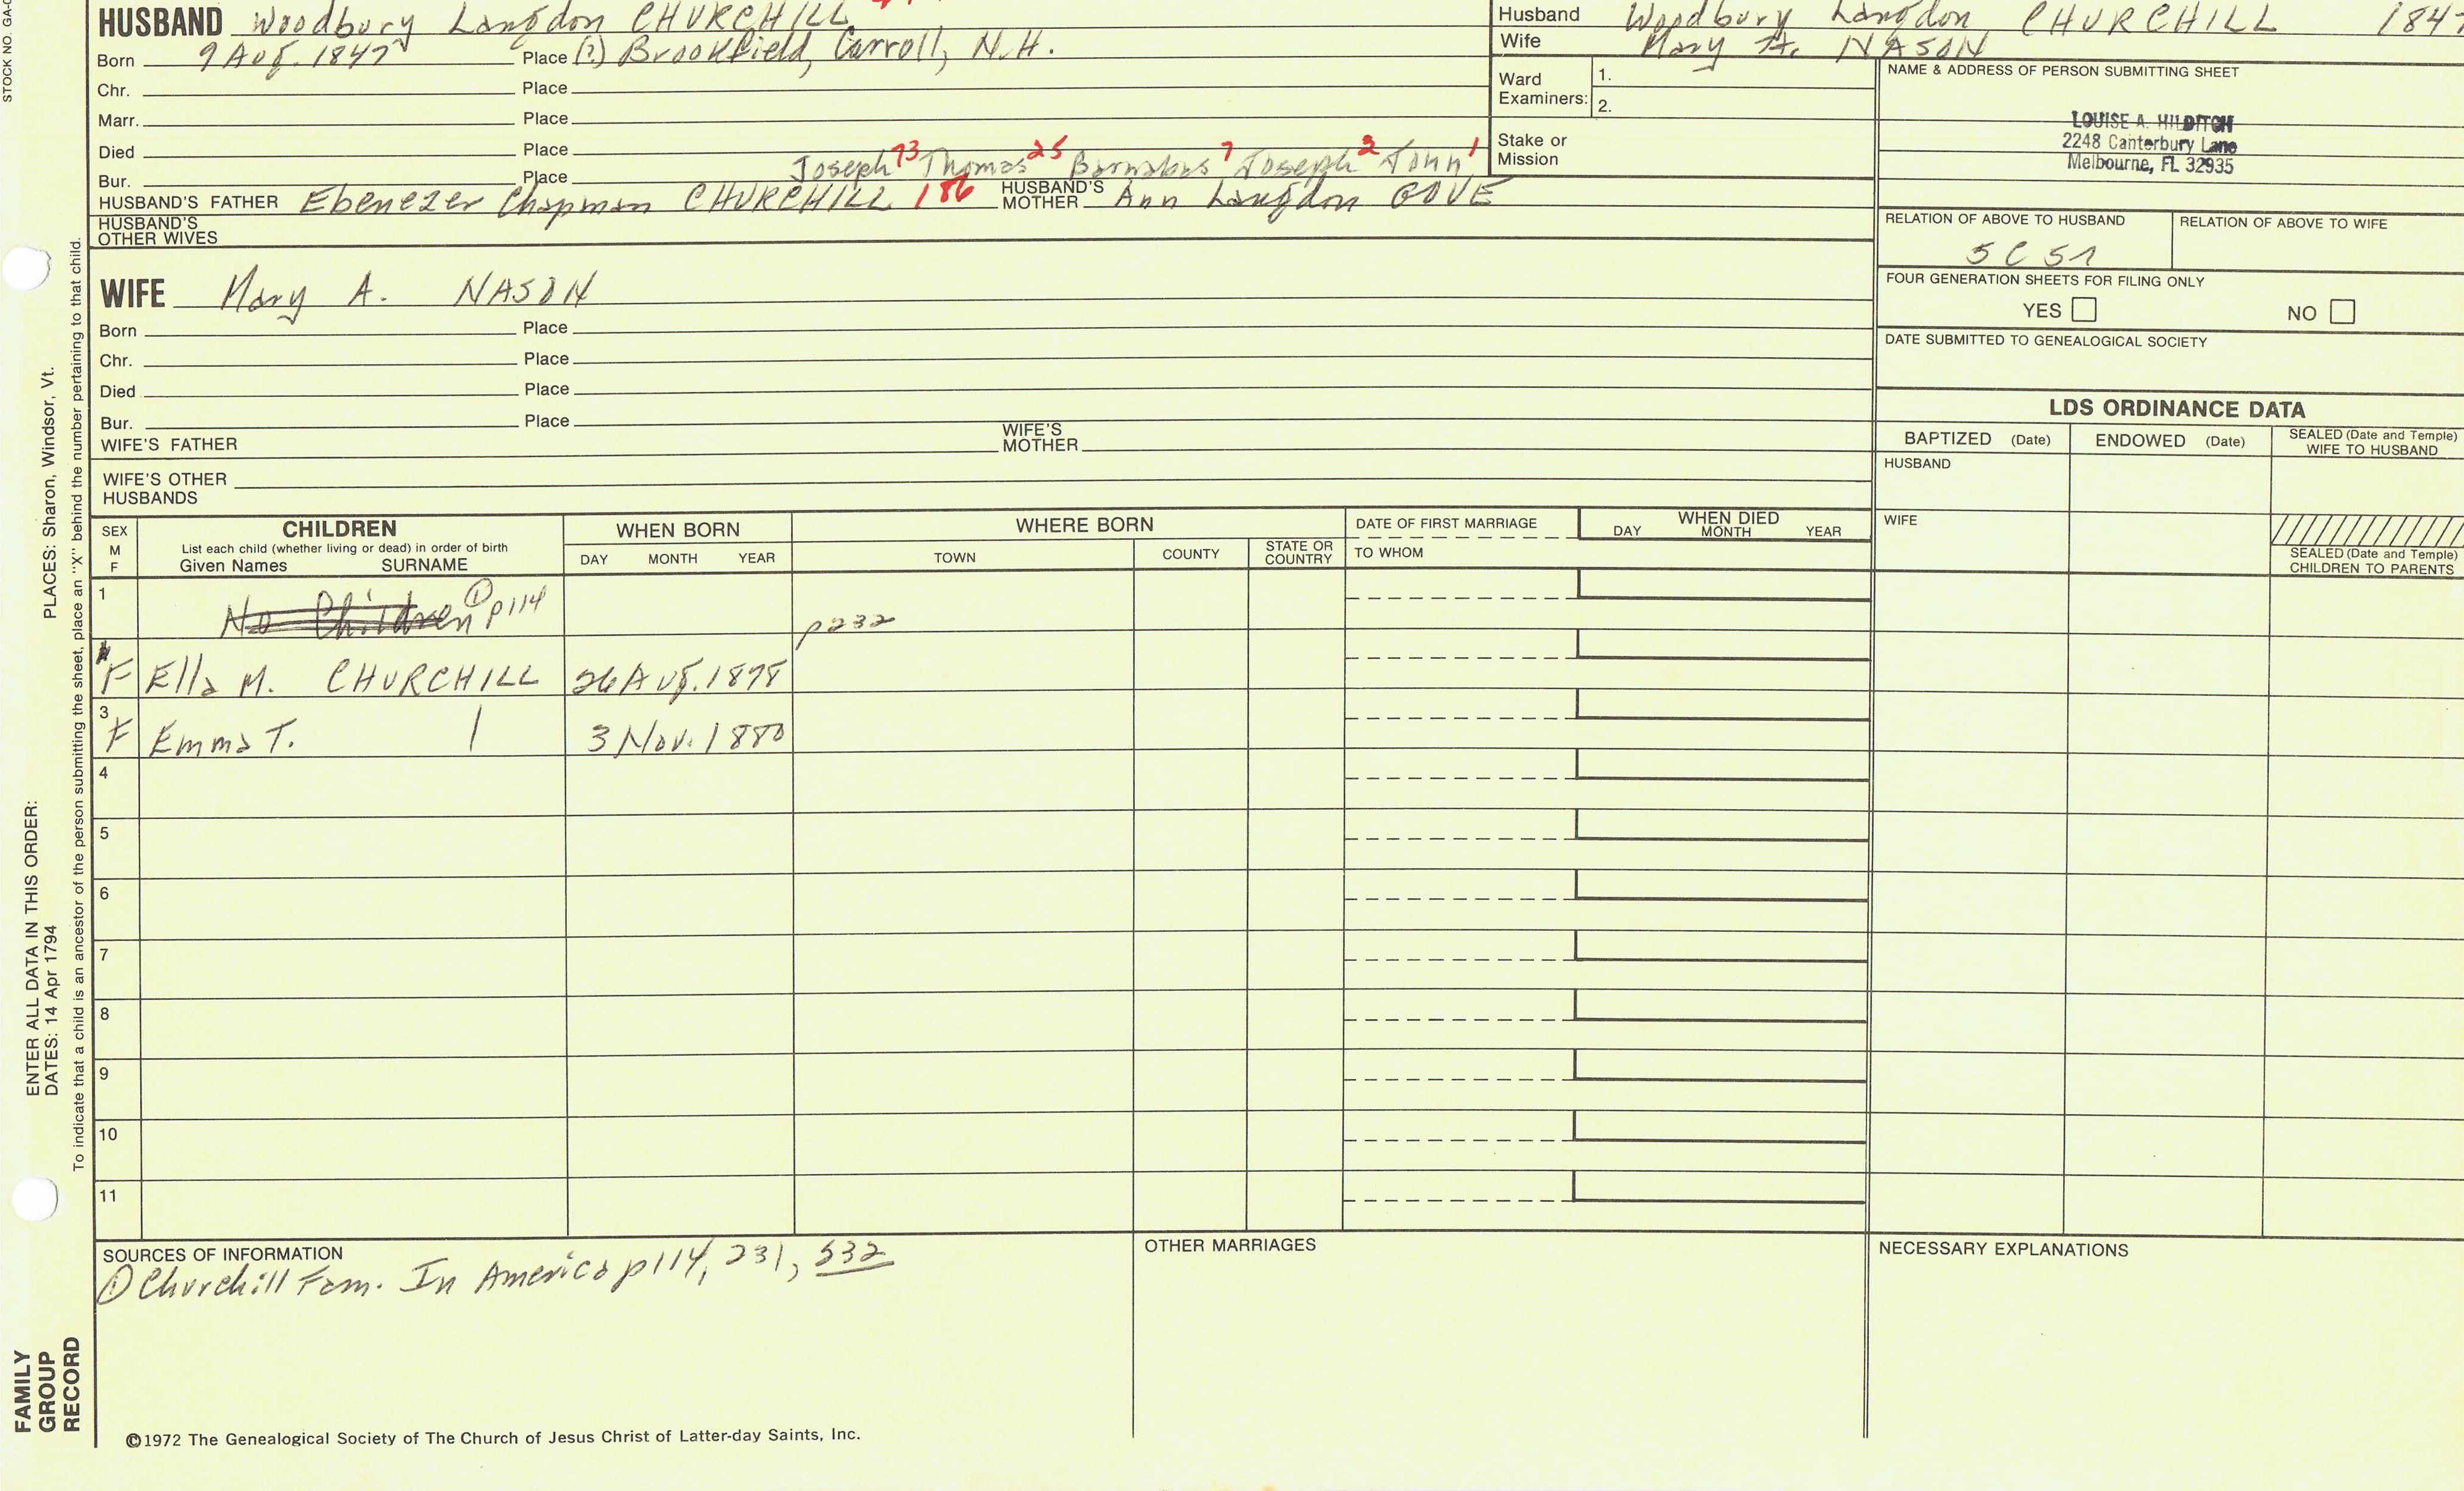 STOCK NO. GA-
HUSBAND Woodbury Langdon CHURCHILL
Born 9 Aug. 1847 Place (?) Brookfield, Carroll, N.H.
Chr. Place
Marr. Place
Died Place
Joseph 73 Thomas 25 Barnabas 7 Joseph 2 John 1
Bur. Place
HUSBAND'S FATHER Ebenezer Chapman CHURCHILL 186 HUSBAND'S MOTHER Ann Langdon GOVE
HUSBAND'S OTHER WIVES
WIFE Mary A. NASON
Born Place
Chr. Place
Died Place
Bur. Place
WIFE'S FATHER WIFE'S MOTHER
WIFE'S OTHER HUSBANDS
Husband Woodbury Langdon CHURCHILL 184
Wife Mary A. NASON
Ward Examiners: 1.
2.
Stake or Mission
NAME & ADDRESS OF PERSON SUBMITTING SHEET
LOUISE A. HILDITCH
2248 Canterbury Lane
Melbourne, FL 32935
RELATION OF ABOVE TO HUSBAND RELATION OF ABOVE TO WIFE
5 C 5 1
FOUR GENERATION SHEETS FOR FILING ONLY
YES NO
DATE SUBMITTED TO GENEALOGICAL SOCIETY
LDS ORDINANCE DATA
BAPTIZED (Date) ENDOWED (Date) SEALED (Date and Temple) WIFE TO HUSBAND
HUSBAND
WIFE
SEALED (Date and Temple) CHILDREN TO PARENTS
SEX M F
CHILDREN
List each child (whether living or dead) in order of birth
Given Names SURNAME
WHEN BORN
DAY MONTH YEAR
WHERE BORN
TOWN COUNTY STATE OR COUNTRY
DATE OF FIRST MARRIAGE
TO WHOM
WHEN DIED
DAY MONTH YEAR
1 No Children ① p114 p232
F Ella M. CHURCHILL 26 Aug. 1878
3 F Emma T. | 3 Nov. 1880
4
5
6
7
8
9
10
11
SOURCES OF INFORMATION
① Churchill Fam. In America p114, 231, 532
OTHER MARRIAGES
NECESSARY EXPLANATIONS
©1972 The Genealogical Society of The Church of Jesus Christ of Latter-day Saints, Inc.
ENTER ALL DATA IN THIS ORDER:
DATES: 14 Apr 1794 PLACES: Sharon, Windsor, Vt.
To indicate that a child is an ancestor of the person submitting the sheet, place an "X" behind the number pertaining to that child.
FAMILY
GROUP
RECORD